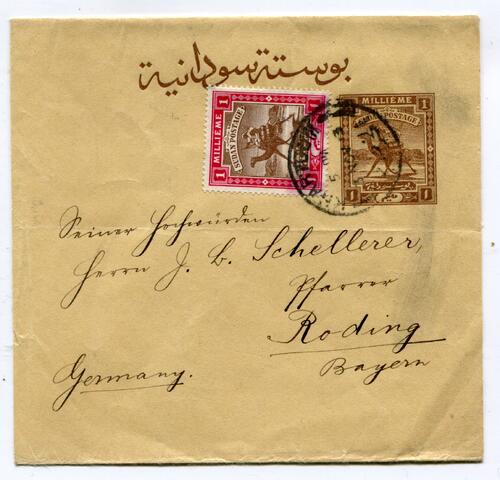 بوستة سودانية
1 MILLIEME 1
SUDAN POSTAGE
1 1
1 MILLIEME 1
POSTAGE
1 مليم 1
Seiner Hochwürden
Herrn J. B. Schellerer,
Pfarrer
Roding
Bayern
Germany.